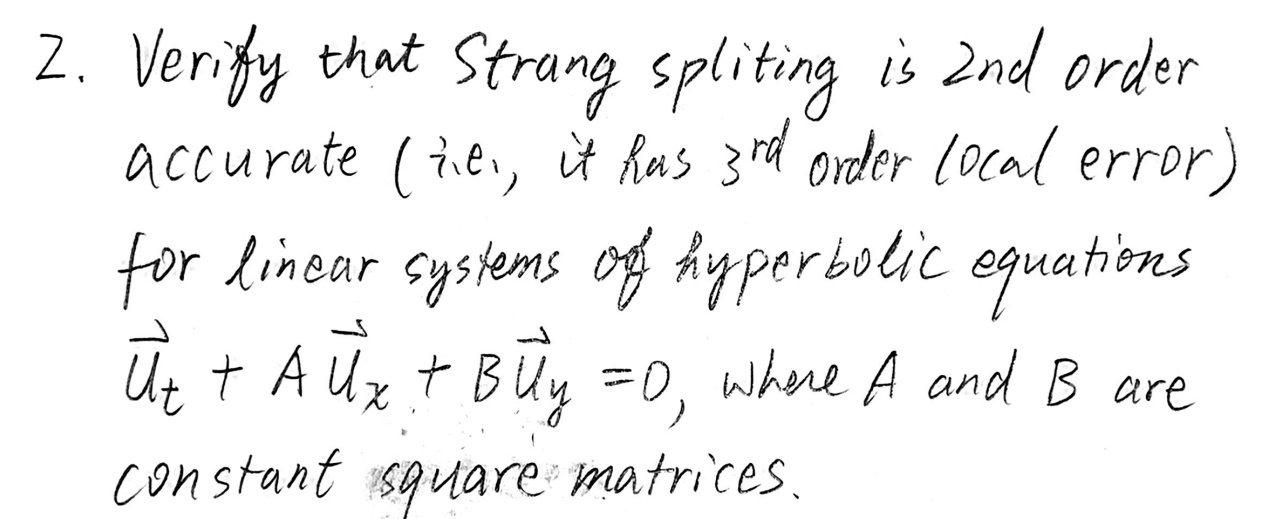 2. Verify that Strang spliting is 2nd order
accurate (i.e., it has 3rd order local error)
for linear systems of hyperbolic equations
$\vec{u}_t + A\vec{u}_x + B\vec{u}_y = 0$, where A and B are
constant square matrices.